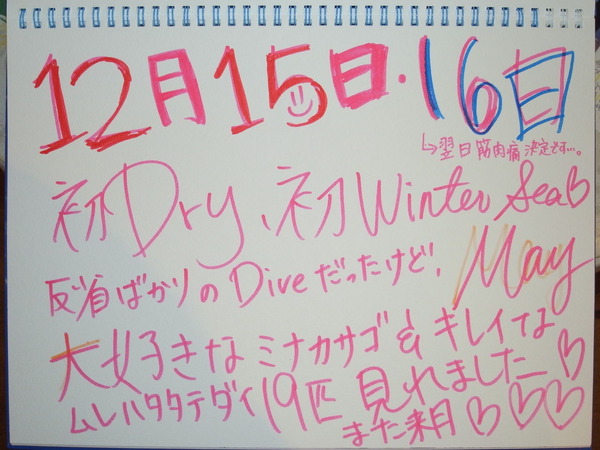 12月15日・16日
↳翌日筋肉痛決定です…。
初Dry、初Winter Sea♡
反省ばかりのDiveだったけど、May
大好きなミナカサゴ&キレイな
ムレハタタテダイ19匹見れました♡
また来月♡♡♡